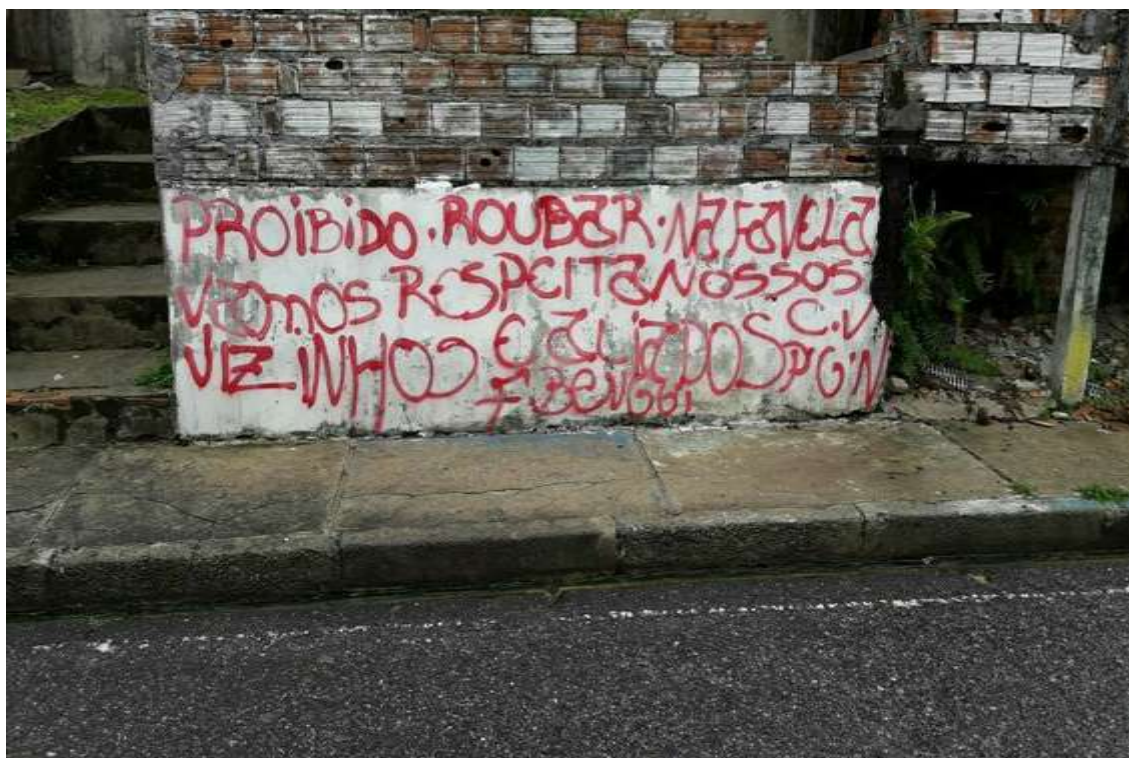 PROiBiDO. ROUBaR. Na FaVELa
VamOS RESPEiTa NOSSOS
ViZiNHOS E aLiaDOS C.V
BENGUi